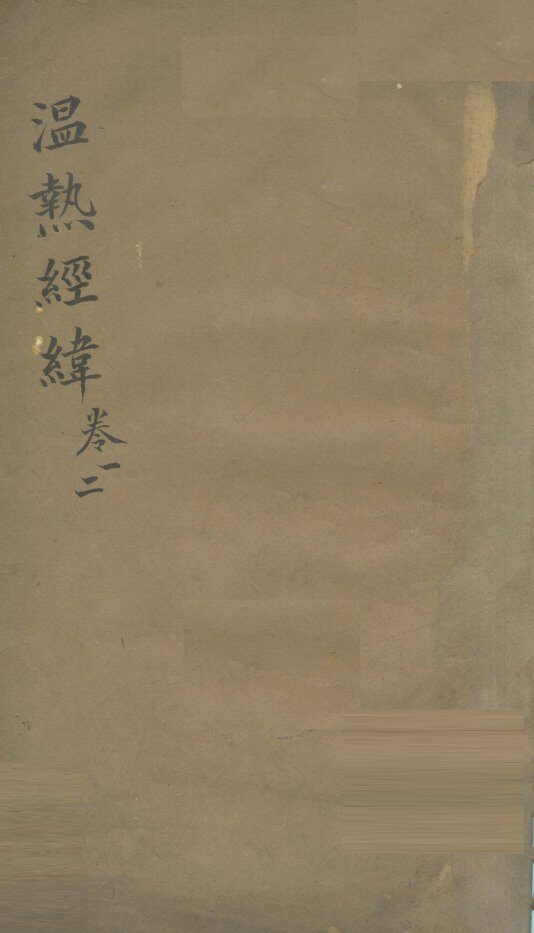 温熱經緯
卷一
二